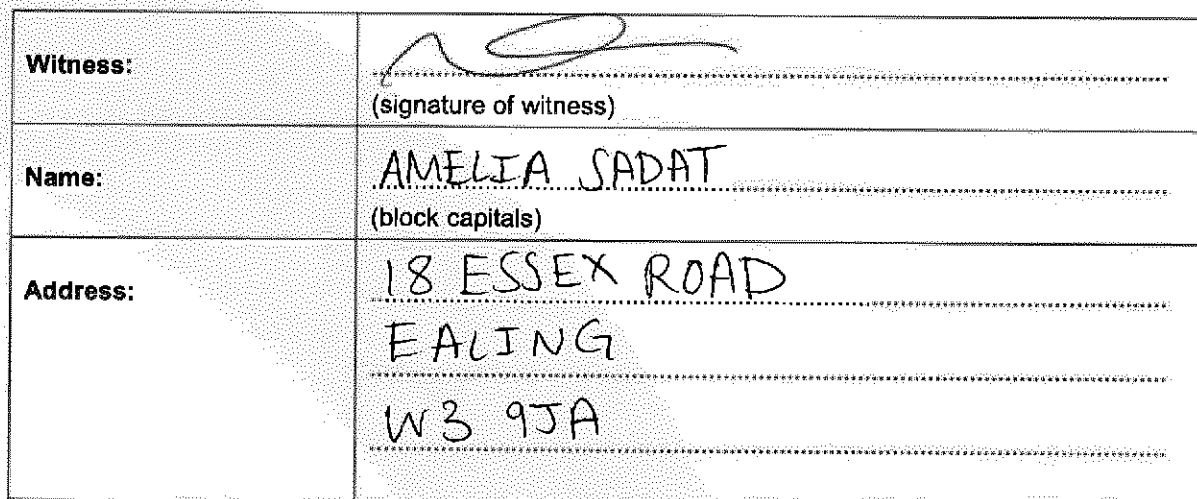 Witness:
(signature of witness)
Name:
AMELIA SADAT
(block capitals)
Address:
18 ESSEX ROAD
EALING
W3 9JA